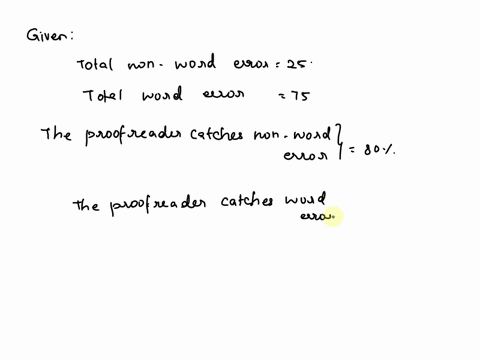 Given:
Total non-word error = 25.
Total word error = 75
The proofreader catches non-word
error } = 80%.
The proofreader catches word
error